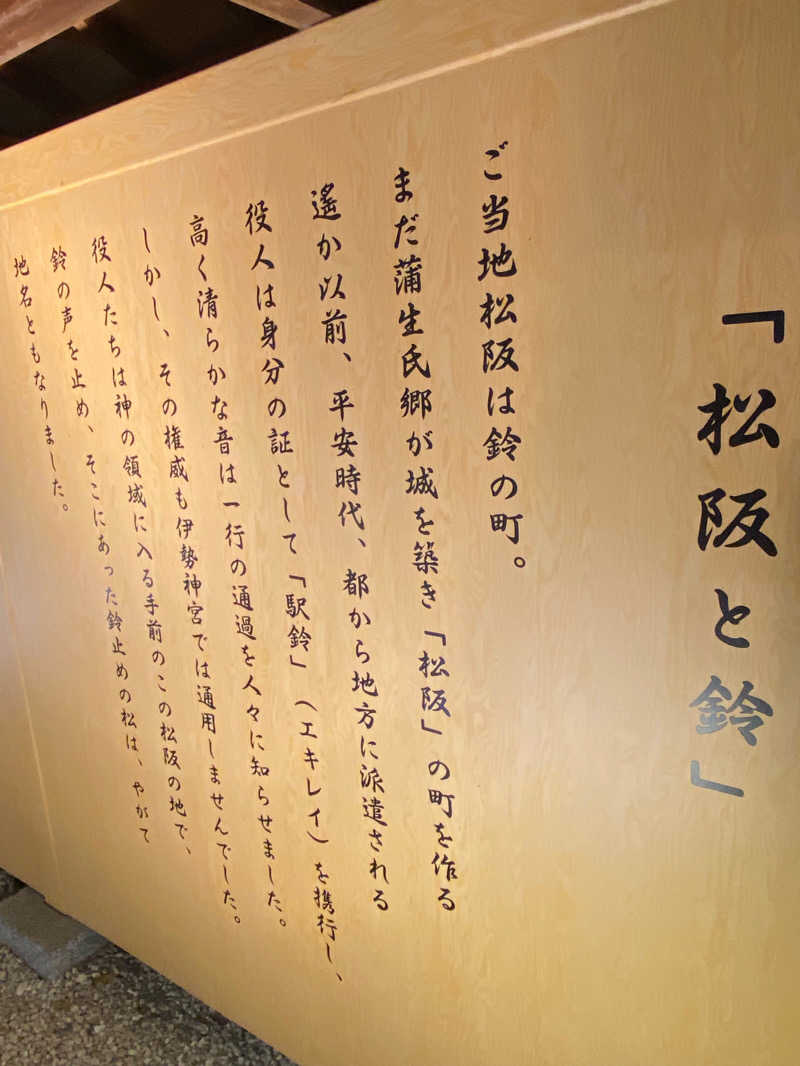 「松阪と鈴」
ご当地松阪は鈴の町。
まだ蒲生氏郷が城を築き「松阪」の町を作る
遙か以前、平安時代、都から地方に派遣される
役人は身分の証として「駅鈴」（エキレイ）を携行し、
高く清らかな音は一行の通過を人々に知らせました。
しかし、その権威も伊勢神宮では通用しませんでした。
役人たちは神の領域に入る手前のこの松阪の地で、
鈴の声を止め、そこにあった鈴止めの松は、やがて
地名ともなりました。